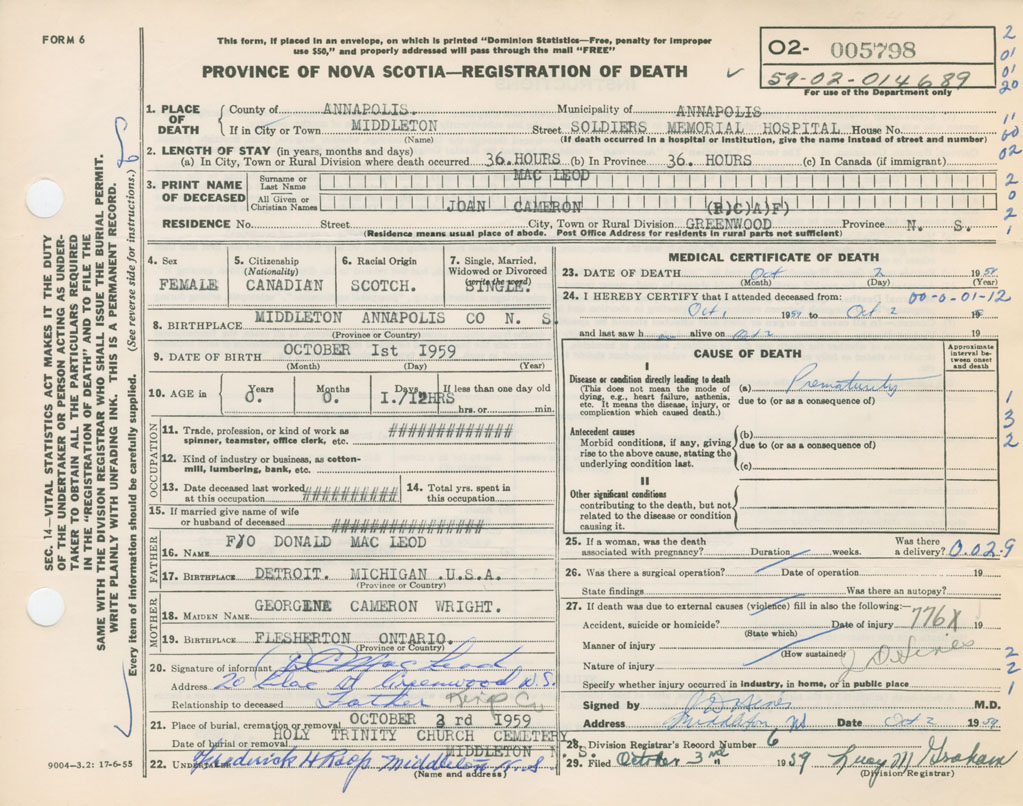 FORM 6
This form, if placed in an envelope, on which is printed "Dominion Statistics—Free, penalty for improper
use $50," and properly addressed will pass through the mail "FREE"
PROVINCE OF NOVA SCOTIA—REGISTRATION OF DEATH
O2- 005798
59-02-014689
For use of the Department only
2
01
01
20
11
60
02
2
0
2
1
SEC. 14—VITAL STATISTICS ACT MAKES IT THE DUTY
OF THE UNDERTAKER OR PERSON ACTING AS UNDER-
TAKER TO OBTAIN ALL THE PARTICULARS REQUIRED
IN THE "REGISTRATION OF DEATH" AND TO FILE THE
SAME WITH THE DIVISION REGISTRAR WHO SHALL ISSUE THE BURIAL PERMIT.
WRITE PLAINLY WITH UNFADING INK. THIS IS A PERMANENT RECORD.
Every item of information should be carefully supplied. (See reverse side for instructions.)
1. PLACE OF DEATH
County of ANNAPOLIS. Municipality of ANNAPOLIS
If in City or Town MIDDLETON Street SOLDIERS MEMORIAL HOSPITAL House No.
(Name) (If death occurred in a hospital or institution, give the name instead of street and number)
2. LENGTH OF STAY (in years, months and days)
(a) In City, Town or Rural Division where death occurred 36.HOURS (b) In Province 36. HOURS (c) In Canada (if immigrant)
3. PRINT NAME OF DECEASED
Surname or Last Name MAC LEOD
All Given or Christian Names JOAN CAMERON (R)C)A)F)
RESIDENCE No. Street City, Town or Rural Division GREENWOOD Province N. S.
(Residence means usual place of abode. Post Office Address for residents in rural parts not sufficient)
4. Sex
FEMALE
5. Citizenship (Nationality)
CANADIAN
6. Racial Origin
SCOTCH.
7. Single, Married, Widowed or Divorced (write the word)
SINGLE.
8. BIRTHPLACE MIDDLETON ANNAPOLIS CO N. S.
(Province or Country)
9. DATE OF BIRTH OCTOBER 1st 1959
(Month) (Day) (Year)
10. AGE in
Years 0.
Months 0.
Days 1./12HRS
If less than one day old
hrs. or min.
OCCUPATION
11. Trade, profession, or kind of work as
spinner, teamster, office clerk, etc. #############
12. Kind of industry or business, as cotton-
mill, lumbering, bank, etc.
13. Date deceased last worked
at this occupation ##########
14. Total yrs. spent in
this occupation
15. If married give name of wife
or husband of deceased ################
FATHER
16. NAME F/O DONALD MAC LEOD
17. BIRTHPLACE DETROIT. MICHIGAN .U.S.A.
(Province or Country)
MOTHER
18. MAIDEN NAME GEORGINE CAMERON WRIGHT.
19. BIRTHPLACE FLESHERTON ONTARIO.
(Province or Country)
20. Signature of informant D C Mac Leod
Address 20 Lilac St Greenwood N.S.
Relationship to deceased Father
21. Place of burial, cremation or removal OCTOBER 3rd 1959
HOLY TRINITY CHURCH CEMETERY
Date of burial or removal MIDDLETON N.S.
22. UNDERTAKER Frederick H Roop Middleton N.S
(Name and address)
9004-3.2: 17-6-55
MEDICAL CERTIFICATE OF DEATH
23. DATE OF DEATH Oct 2 1959
(Month) (Day) (Year)
24. I HEREBY CERTIFY that I attended deceased from: 00-0-01-12
Oct 1 1959 to Oct 2 19
and last saw h alive on Oct 2 19
CAUSE OF DEATH
Approximate interval between onset and death
I
Disease or condition directly leading to death
(This does not mean the mode of
dying, e.g., heart failure, asthenia,
etc. It means the disease, injury, or
complication which caused death.)
(a) Prematurity
due to (or as a consequence of)
Antecedent causes
Morbid conditions, if any, giving
rise to the above cause, stating the
underlying condition last.
(b)
due to (or as a consequence of)
(c)
II
Other significant conditions
contributing to the death, but not
related to the disease or condition
causing it.
1
3
2
25. If a woman, was the death
associated with pregnancy? Duration weeks. Was there
a delivery? 0.02-9
26. Was there a surgical operation? Date of operation 19
State findings Was there an autopsy?
27. If death was due to external causes (violence) fill in also the following:—
Accident, suicide or homicide? Date of injury 776X 19
(State which)
Manner of injury
(How sustained)
J D Hines
Nature of injury
2
2
1
Specify whether injury occurred in industry, in home, or in public place
Signed by J D Hines M.D.
Address Middleton NS Date Oct 2 1959.
28. Division Registrar's Record Number 6
29. Filed October 3rd 1959 Lucy M Graham
(Division Registrar)